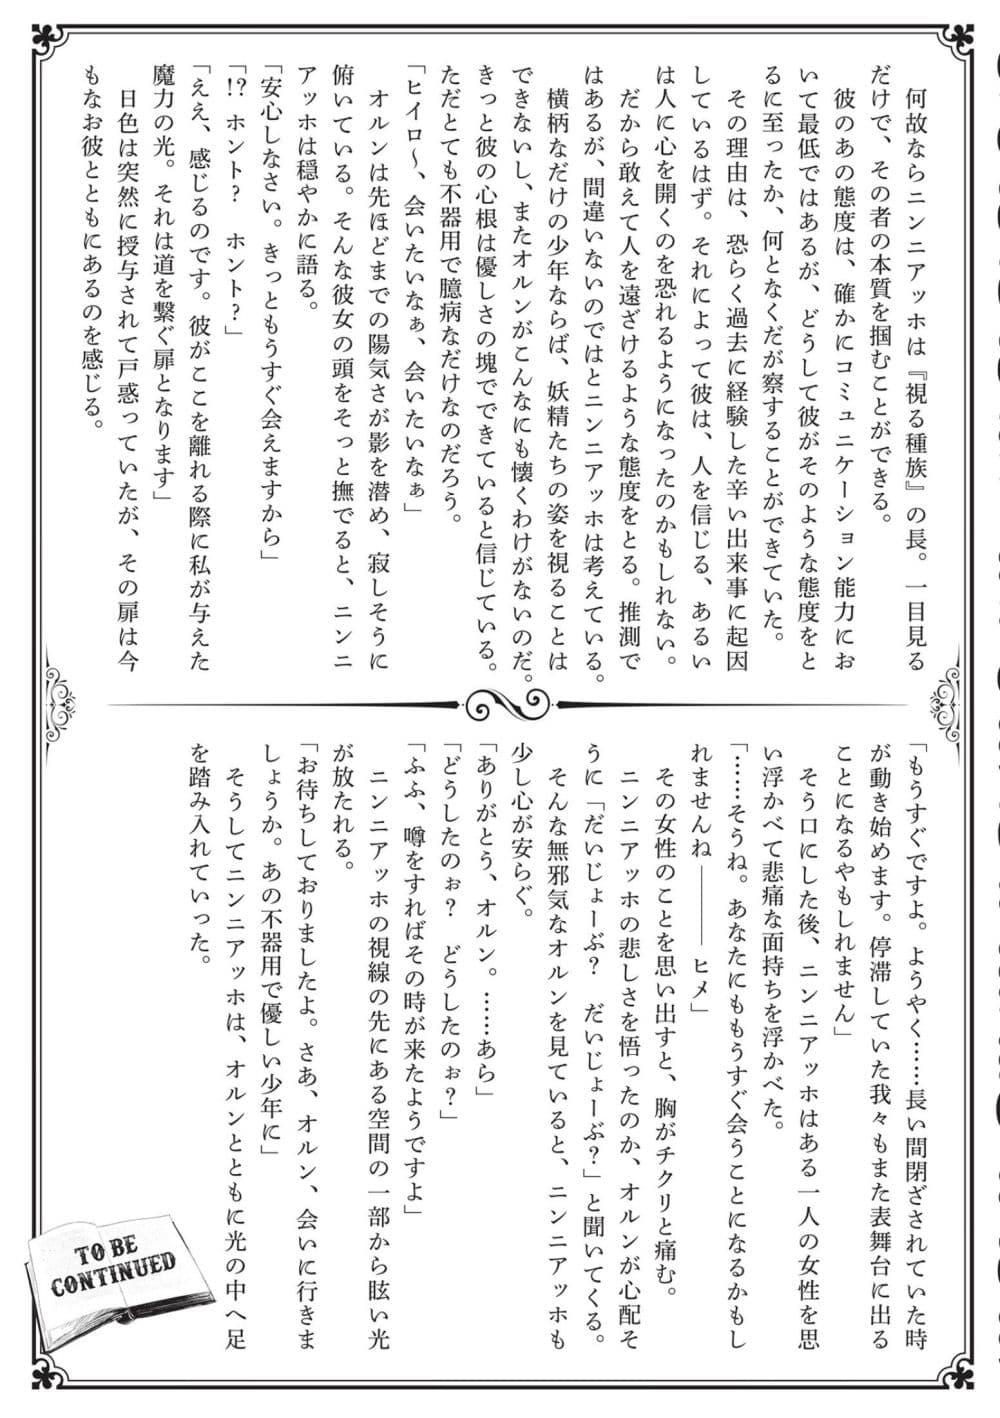 何故ならニンニアッホは『視る種族』の長。一目見る
だけで、その者の本質を掴むことができる。
　彼のあの態度は、確かにコミュニケーション能力にお
いて最低ではあるが、どうして彼がそのような態度をと
るに至ったか、何となくだが察することができていた。
　その理由は、恐らく過去に経験した辛い出来事に起因
しているはず。それによって彼は、人を信じる、あるい
は人に心を開くのを恐れるようになったのかもしれない。
　だから敢えて人を遠ざけるような態度をとる。推測で
はあるが、間違いないのではとニンニアッホは考えている。
　横柄なだけの少年ならば、妖精たちの姿を視ることは
できないし、またオルンがこんなにも懐くわけがないのだ。
きっと彼の心根は優しさの塊でできていると信じている。
ただとても不器用で臆病なだけなのだろう。
「ヒイロ～、会いたいなぁ、会いたいなぁ」
　オルンは先ほどまでの陽気さが影を潜め、寂しそうに
俯いている。そんな彼女の頭をそっと撫でると、ニンニ
アッホは穏やかに語る。
「安心しなさい。きっともうすぐ会えますから」
「!?　ホント？　ホント？」
「ええ、感じるのです。彼がここを離れる際に私が与えた
魔力の光。それは道を繋ぐ扉となります」
　日色は突然に授与されて戸惑っていたが、その扉は今
もなお彼とともにあるのを感じる。
「もうすぐですよ。ようやく……長い間閉ざされていた時
が動き始めます。停滞していた我々もまた表舞台に出る
ことになるやもしれません」
　そう口にした後、ニンニアッホはある一人の女性を思
い浮かべて悲痛な面持ちを浮かべた。
「……そうね。あなたにももうすぐ会うことになるかもし
れませんね――――ヒメ」
　その女性のことを思い出すと、胸がチクリと痛む。
　ニンニアッホの悲しさを悟ったのか、オルンが心配そ
うに「だいじょーぶ？　だいじょーぶ？」と聞いてくる。
　そんな無邪気なオルンを見ていると、ニンニアッホも
少し心が安らぐ。
「ありがとう、オルン。……あら」
「どうしたのぉ？　どうしたのぉ？」
「ふふ、噂をすればその時が来たようですよ」
　ニンニアッホの視線の先にある空間の一部から眩い光
が放たれる。
「お待ちしておりましたよ。さあ、オルン、会いに行きま
しょうか。あの不器用で優しい少年に」
　そうしてニンニアッホは、オルンとともに光の中へ足
を踏み入れていった。
TO BE
CONTINUED